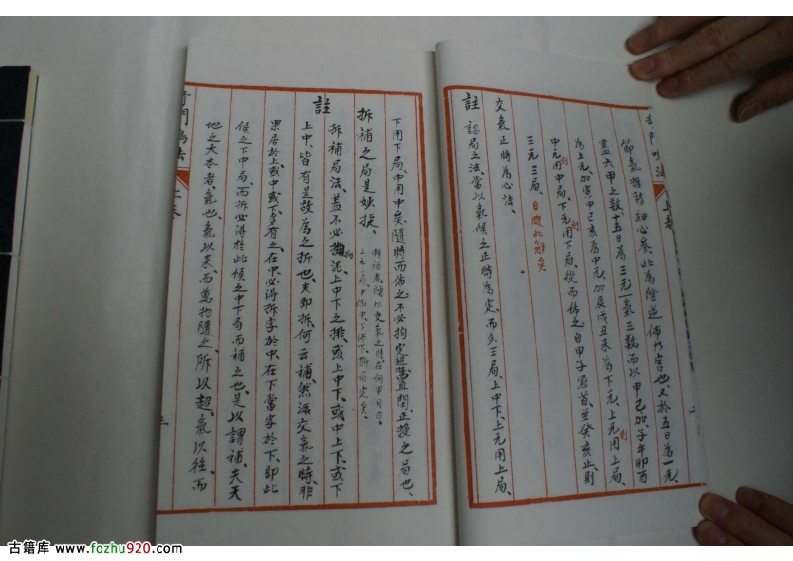 節氣推移細心參、此為陰逆佈九宮也、又於五日為一元、
盖六甲之数、十五日為三元一氣三数、而以甲己加子午卯酉
為上元、加寅申己亥為中元、加辰戌丑未為下元、上元則用上局、
中元則用中局、下元則用下局、從而佈之、自甲子冠首、至癸亥止、則
三元三局、自随此解矣
交氣正時為心法、
註
認局之法、當以氣候之正時為定、而交三局、上中下、上元用上局、
下用下局、中用中矣、隨時而佈之、不必拘定超舊直閏正授之局也、
拆補之局是妙探、
拆補者總以交氣之時在何甲日内、
註
拆補局法、盖不必拘泥上中下之挨、或上中下、或中上下、或下
上中、皆有是故為之拆也、夫即拆、何云補、然法交氣之時、非
果居於上、或中或下、皆有之、在中必得拆字於中、在下當字於下、即此
候之下中局、而拆必得挂此候之中下局而補之也、是以謂補、夫天
地之大本者、氣也、氣以来、而萬物隨之、所以超、氣以往、而
三
古籍库 www.fozhu920.com